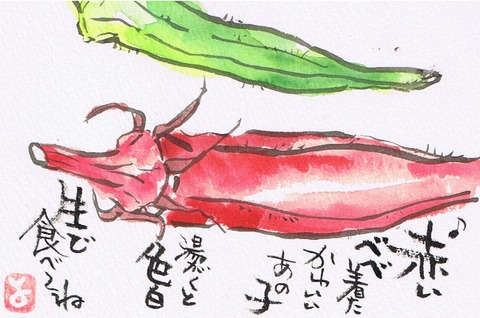 ♪赤い
べべ着た
かわいい
あの子
湯がくと
色白
生で
食べてね